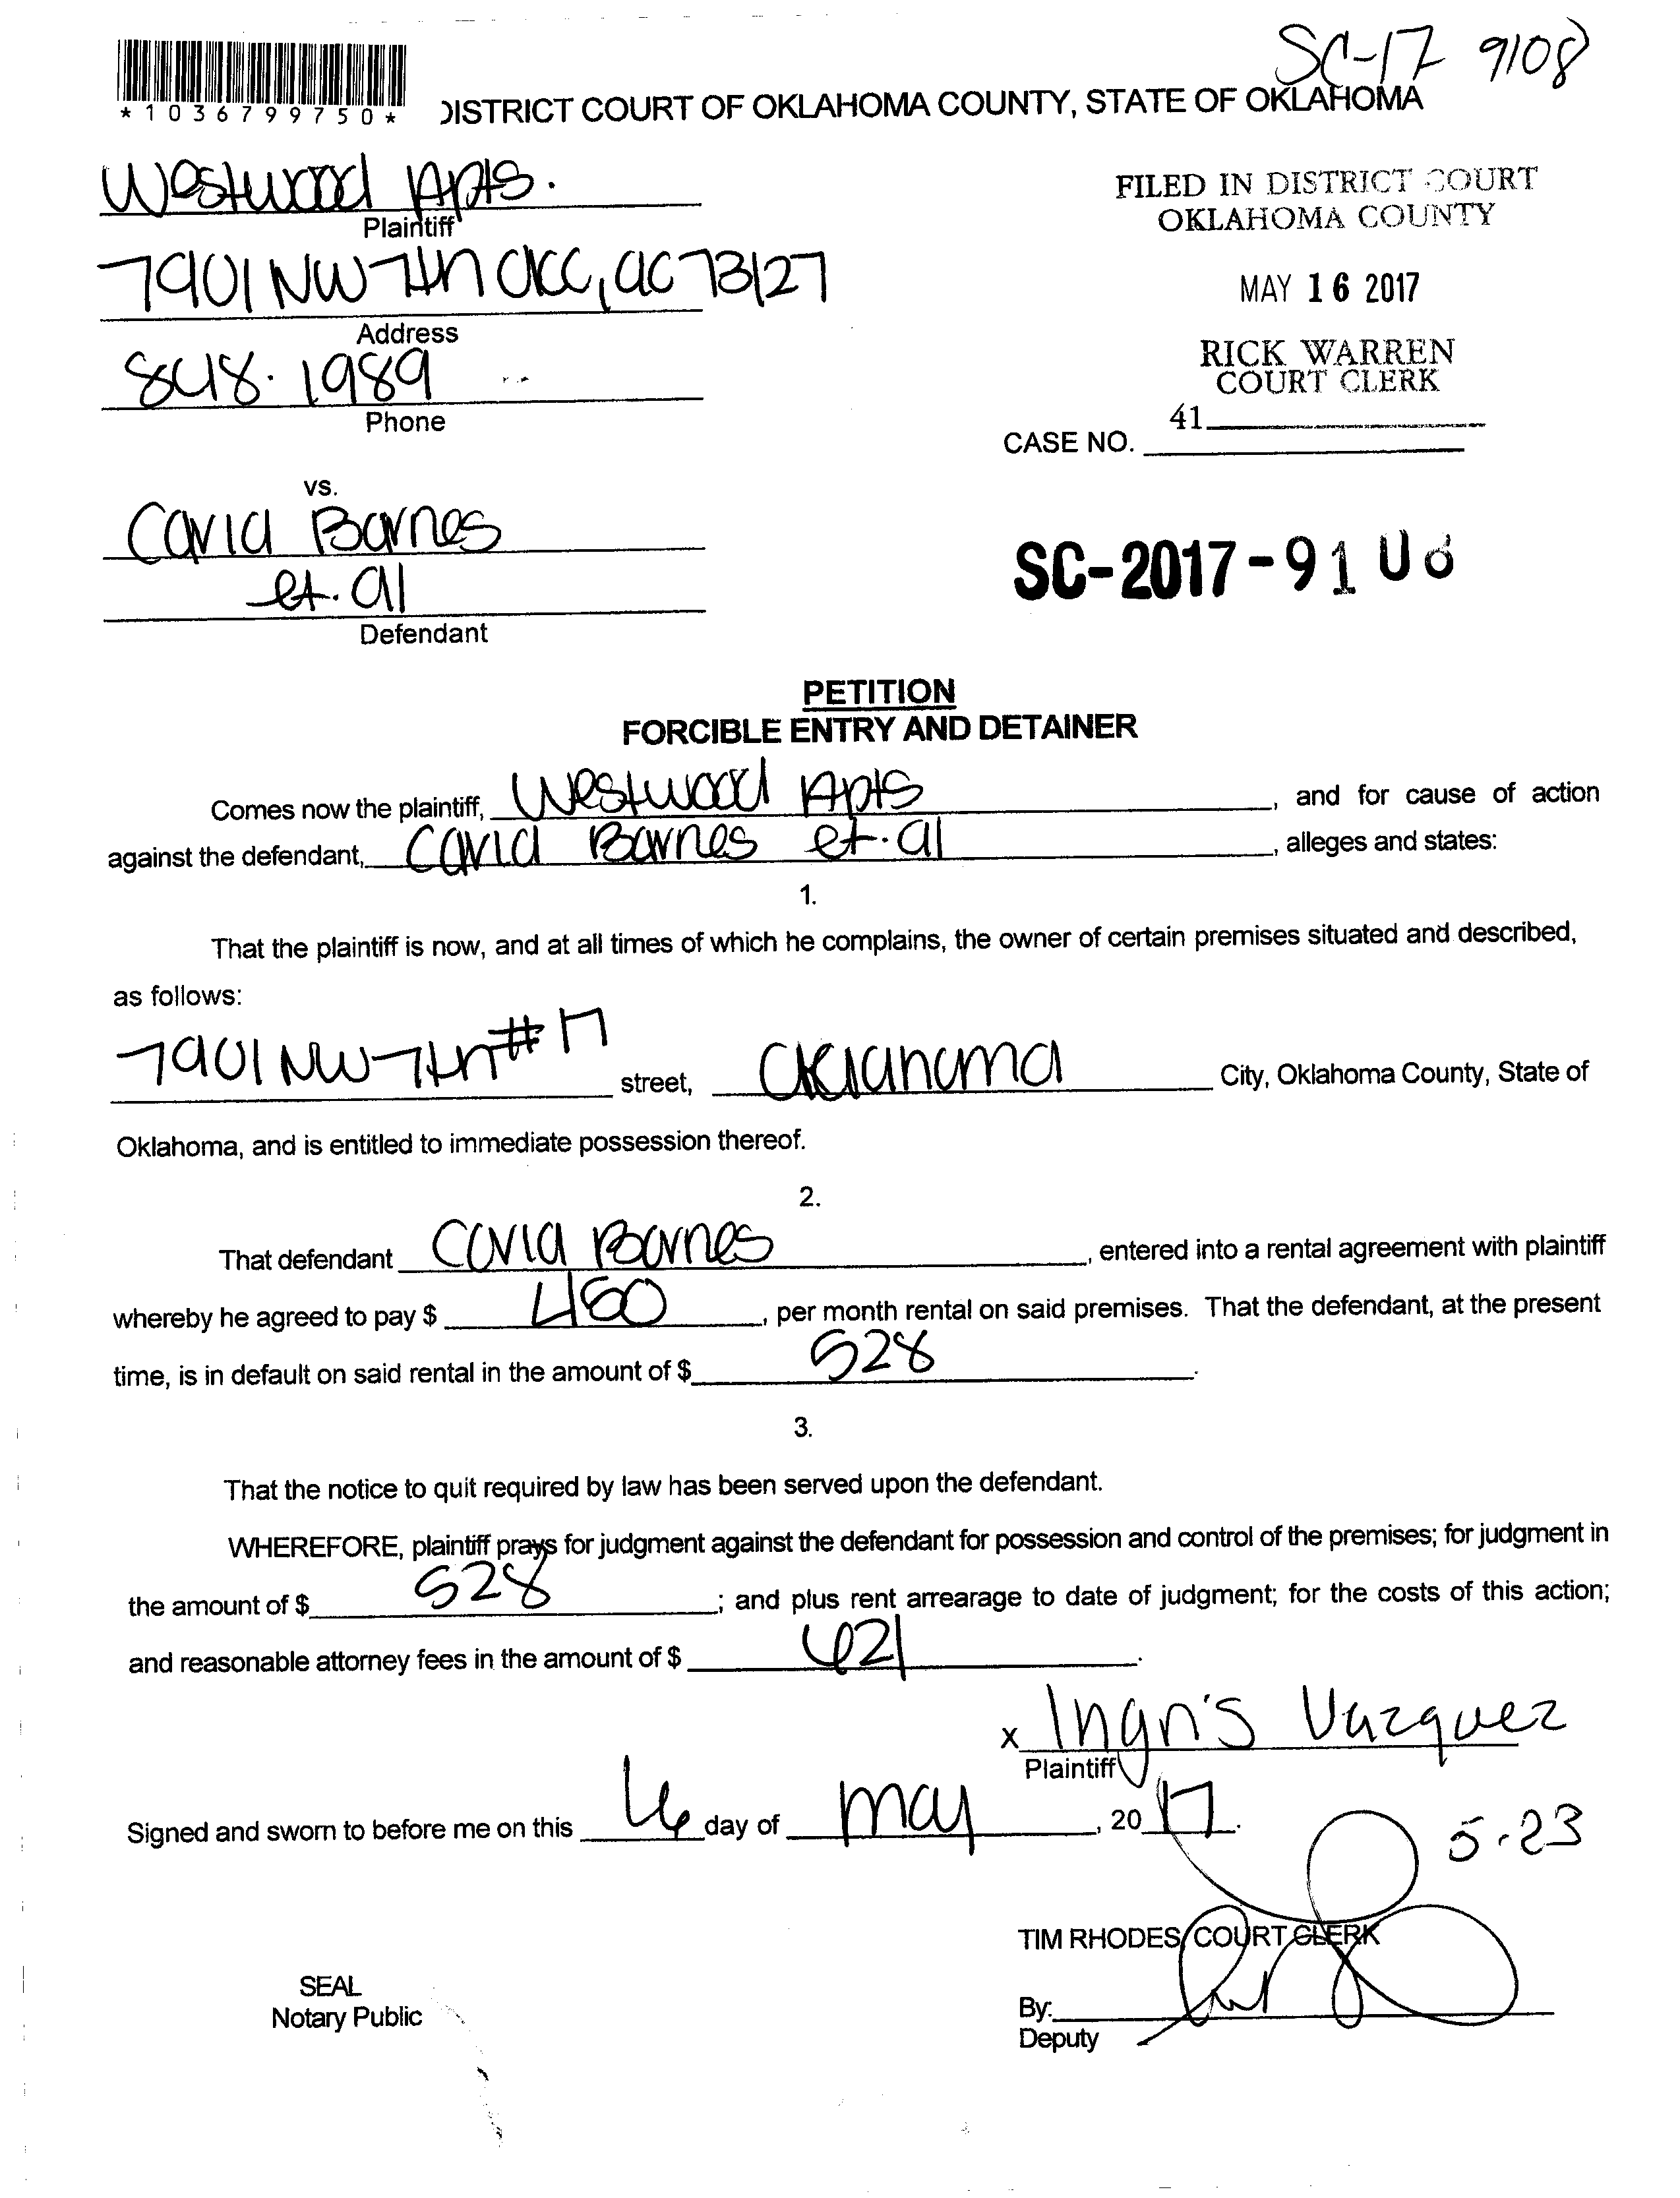 SC-17 9108
*1036799750*
DISTRICT COURT OF OKLAHOMA COUNTY, STATE OF OKLAHOMA
Westwood Apts.
Plaintiff
FILED IN DISTRICT COURT
OKLAHOMA COUNTY
7901 NW 7th OKC, OK 73127
Address
MAY 16 2017
848-1989
Phone
RICK WARREN
COURT CLERK
41
CASE NO.
vs.
Barnes
et. al
Defendant
SC-2017-91
PETITION
FORCIBLE ENTRY AND DETAINER
Comes now the plaintiff, Westwood Apts, and for cause of action
against the defendant, Barnes et. al, alleges and states:
1.
That the plaintiff is now, and at all times of which he complains, the owner of certain premises situated and described,
as follows:
7901 NW 7th #17 street, Oklahoma City, Oklahoma County, State of
Oklahoma, and is entitled to immediate possession thereof.
2.
That defendant Barnes, entered into a rental agreement with plaintiff
whereby he agreed to pay $ 480, per month rental on said premises. That the defendant, at the present
time, is in default on said rental in the amount of $ 528.
3.
That the notice to quit required by law has been served upon the defendant.
WHEREFORE, plaintiff prays for judgment against the defendant for possession and control of the premises; for judgment in
the amount of $ 528; and plus rent arrearage to date of judgment; for the costs of this action;
and reasonable attorney fees in the amount of $ 621.
x Ingris Vazquez
Plaintiff
Signed and sworn to before me on this 16 day of may, 2017.
5-23
TIM RHODES, COURT CLERK
SEAL
Notary Public
By:
Deputy